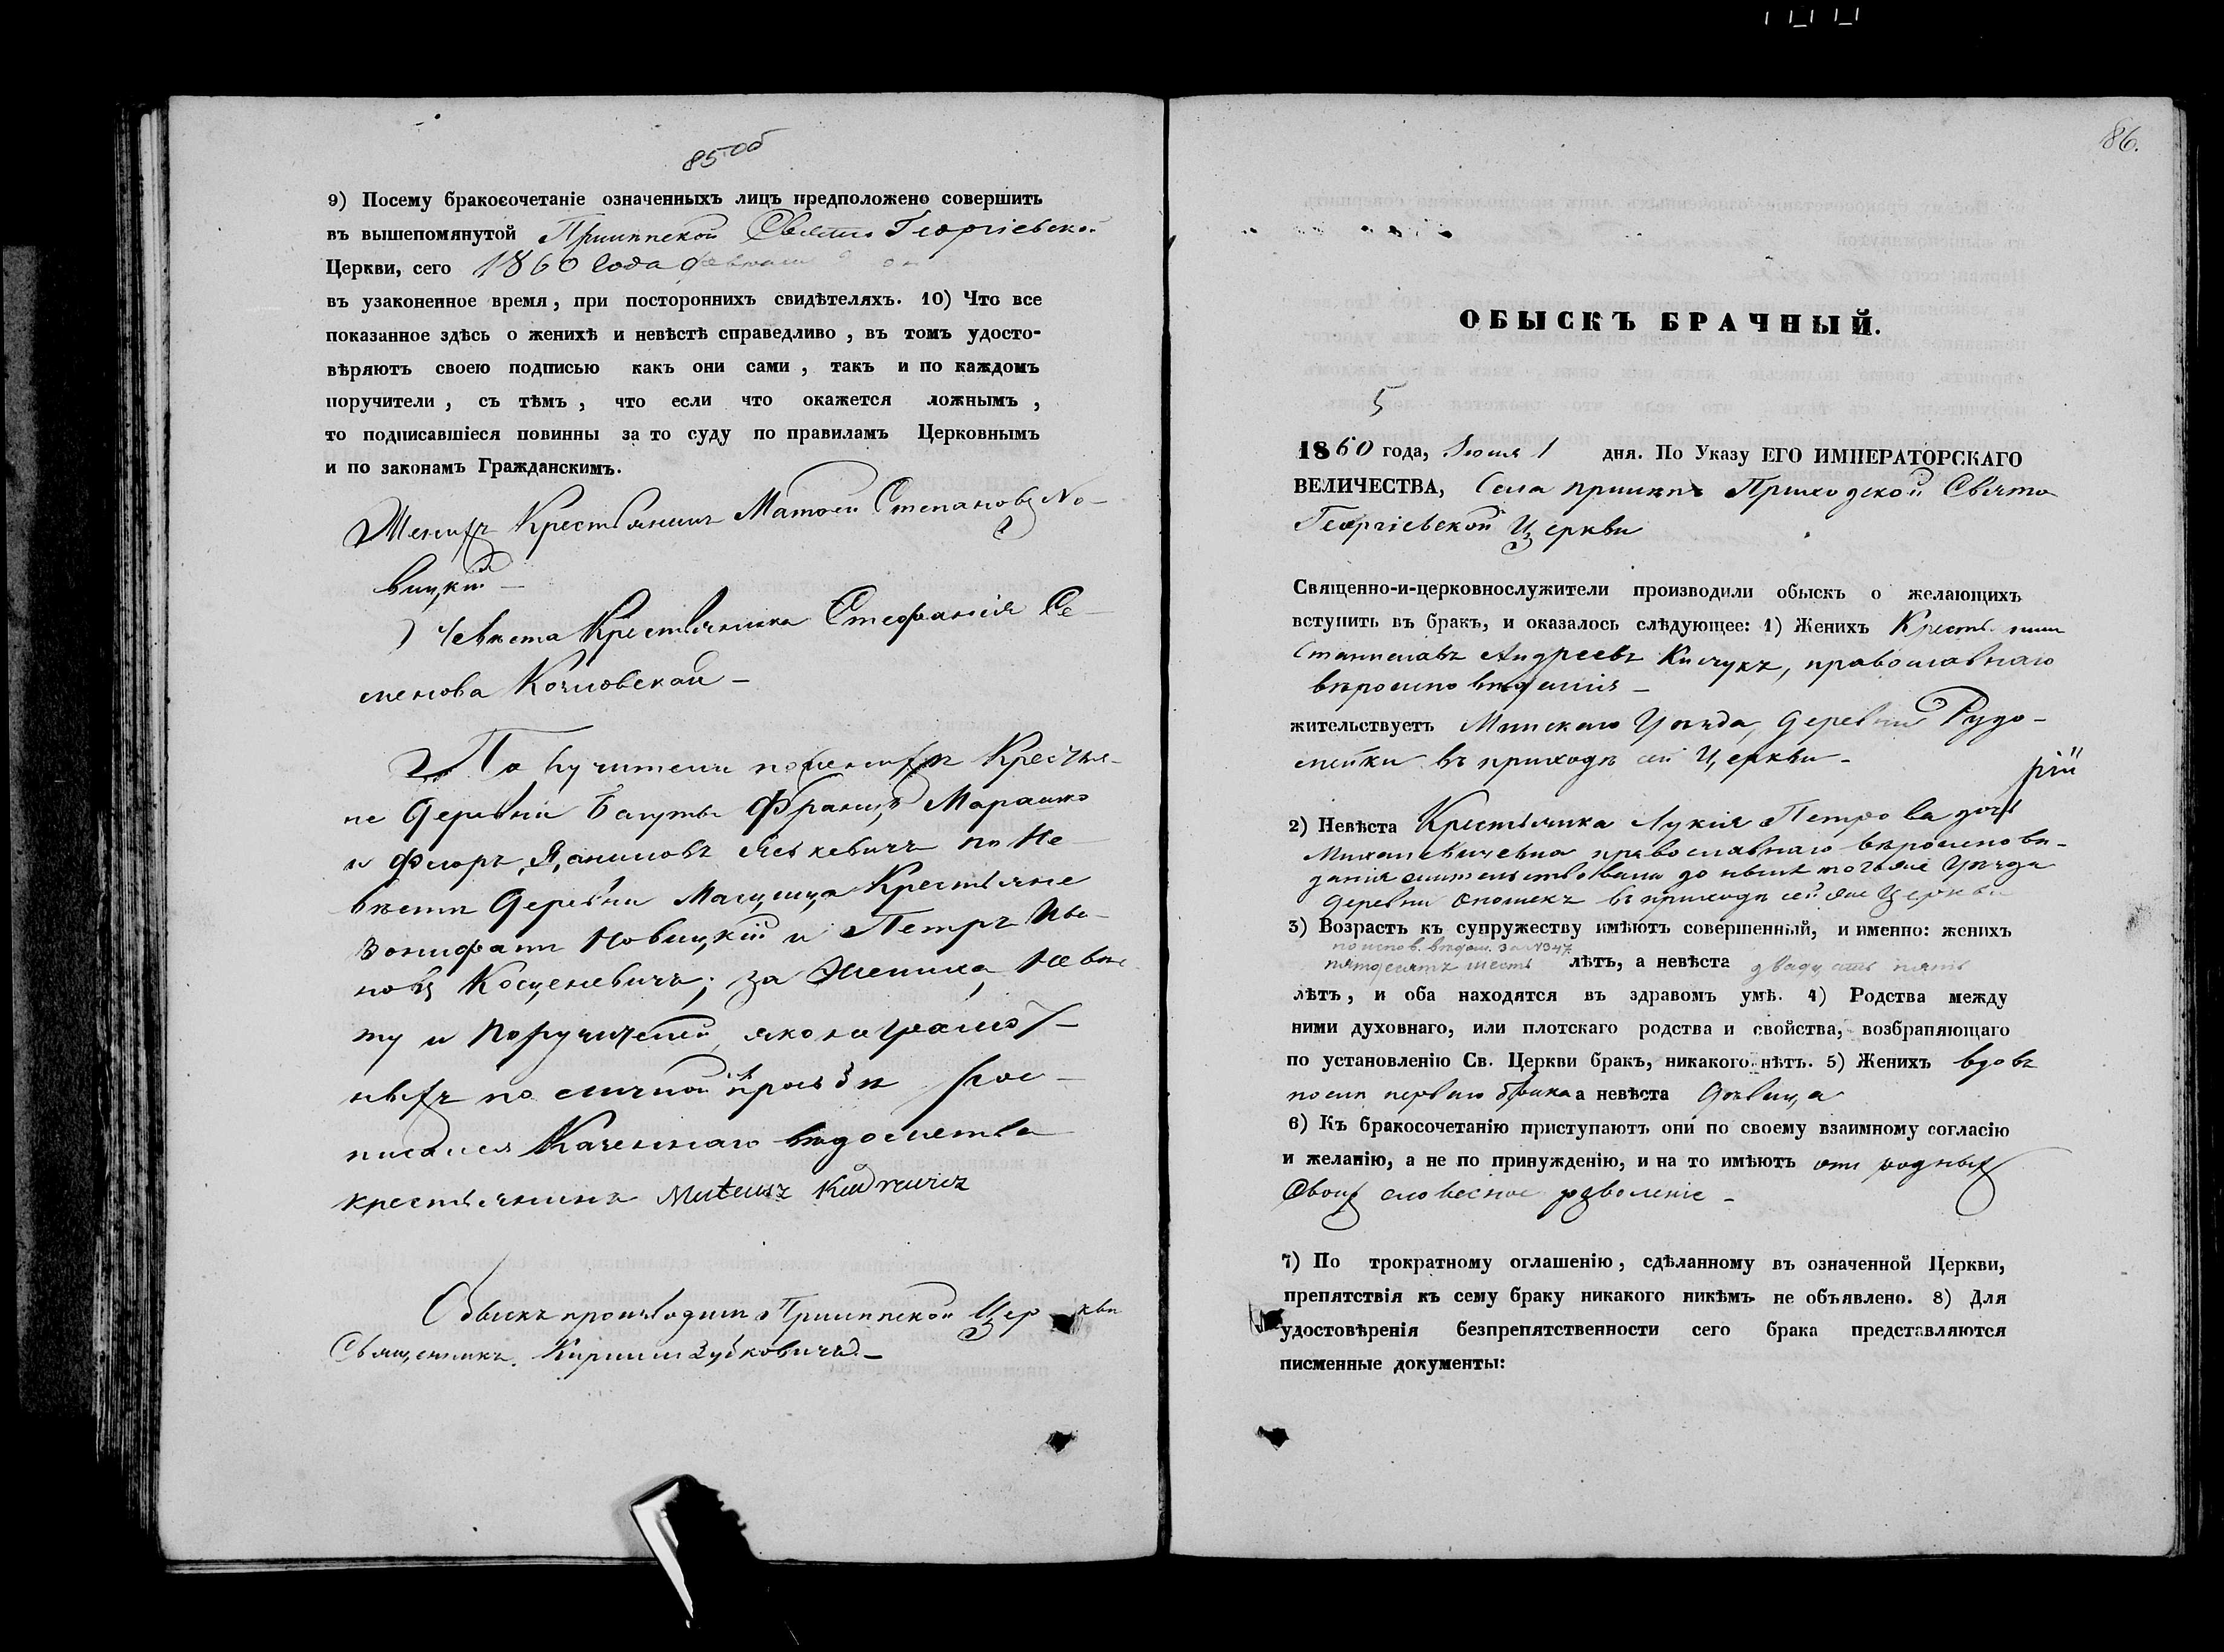 85 об
9) Посему бракосочетаніе означенныхъ лицъ предположено совершить
въ вышепомянутой Прилипской Свято Георгіевской
Церкви, сего 1860 года февраля
въ узаконенное время, при постороннихъ свидѣтеляхъ. 10) Что все
показанное здѣсь о женихѣ и невѣстѣ справедливо, въ томъ удосто-
вѣряютъ своею подписью какъ они сами, такъ и по каждомъ
поручители, съ тѣмъ, что если что окажется ложнымъ,
то подписавшіеся повинны за то суду по правиламъ Церковнымъ
и по законамъ Гражданскимъ.
Женихъ Крестьянинъ Матвей Степановъ Но-
вицкій —
Невѣста Крестьянка Стефанія Се-
менова Козловская —
Поручители по женихѣ Крестья-
не Деревни Францъ Марашко
и Флоръ Даниловъ по Не-
вѣстѣ Деревни Крестьяне
Бонифатъ Новицкій и Петръ Ива-
новъ Косценевичъ; за Жениха, Невѣс
ту и Поручителей, яко неграмот-
ныхъ по личной прозьбѣ рос-
писался Казеннаго вѣдомства
крестьянинъ Mateusz
Обыскъ производилъ Прилипской Церкви
Священникъ Кириллъ Зубковичъ —
86.
ОБЫСКЪ БРАЧНЫЙ.
5
1860 года, Іюня 1 дня. По Указу ЕГО ИМПЕРАТОРСКАГО
ВЕЛИЧЕСТВА, Села Прилепъ Приходской Свято
Георгіевской Церкви
Священно-и-церковнослужители производили обыскъ о желающихъ
вступить въ бракъ, и оказалось слѣдующее: 1) Женихъ Крестьянинъ
Станиславъ Андреевъ Кисчукъ, православнаго
вѣроисповѣданія —
жительствуетъ Минскаго Уѣзда, Деревни Рудо-
мейки въ приходѣ сей Церкви —
2) Невѣста Крестьянка Лукія Петрова дочь
Михалевичевна православнаго вѣроисповѣ-
данія жительствовала до нынѣ того же Уѣзда
деревни въ приходѣ сей же Церкви
3) Возрастъ къ супружеству имѣютъ совершенный, и именно: женихъ
по испов. вѣдом. за 1847
пятдесятъ шесть лѣтъ, а невѣста двадцать пять
лѣтъ, и оба находятся въ здравомъ умѣ. 4) Родства между
ними духовнаго, или плотскаго родства и свойства, возбраняющаго
по установленію Св. Церкви бракъ, никакого нѣтъ. 5) Женихъ вдовъ
послѣ перваго брака а невѣста дѣвица
6) Къ бракосочетанію приступаютъ они по своему взаимному согласію
и желанію, а не по принужденію, и на то имѣютъ отъ родныхъ
своихъ словесное разволеніе —
7) По трократному оглашенію, сдѣланному въ означенной Церкви,
препятствія къ сему браку никакого никѣмъ не объявлено. 8) Для
удостовѣренія безпрепятственности сего брака представляются
писменные документы: